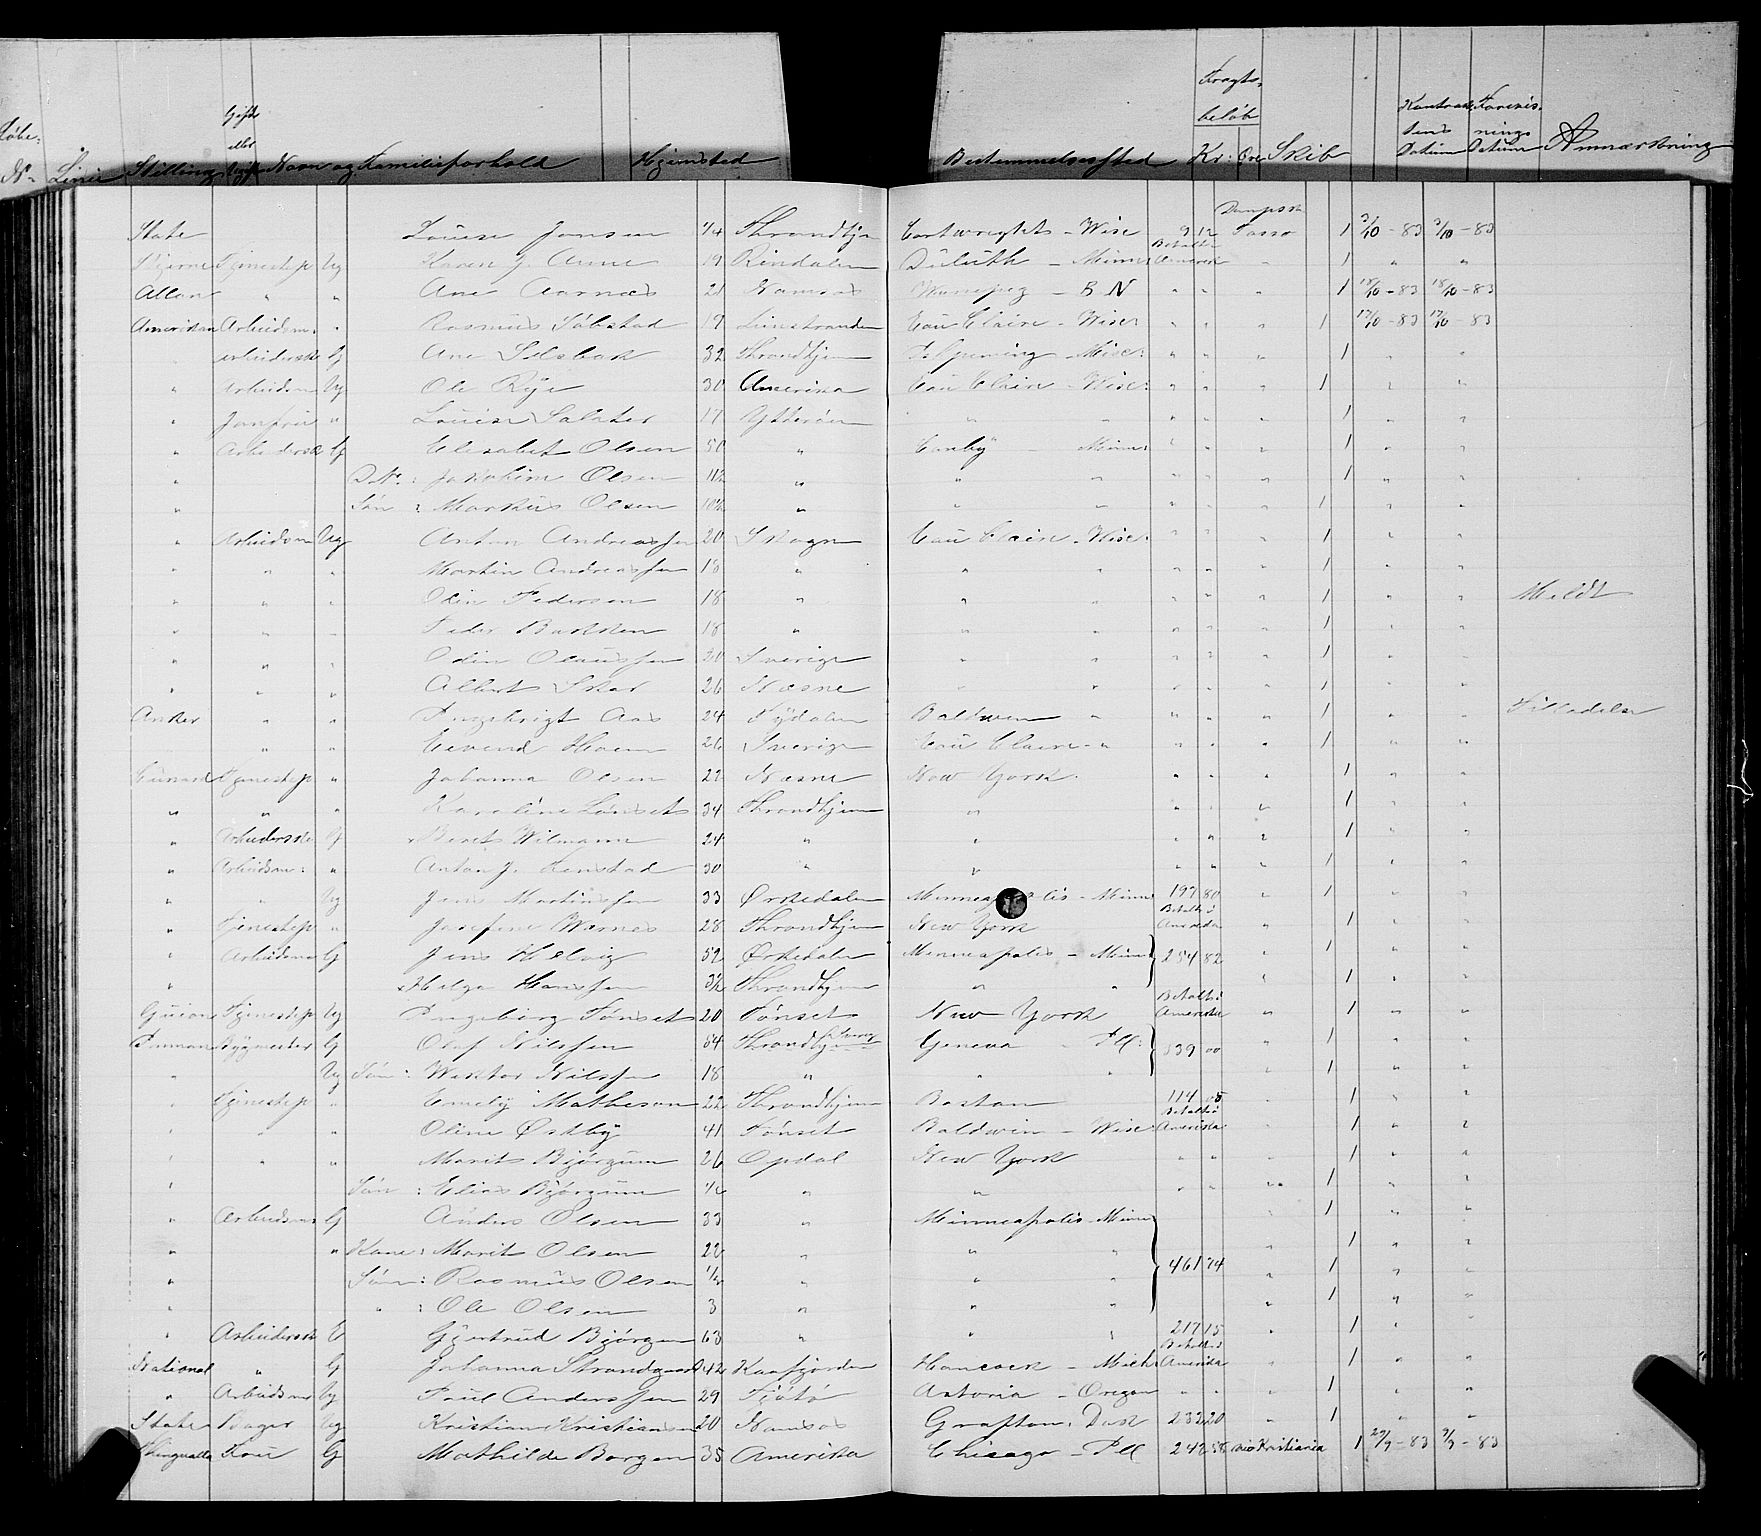 Løbe- N. Linie Stilling Gift eller Ugift Navn og Familieforhold Hjemsted Bestemmelsessted Fragtbeløb Kr: Øre Skib Kontraktens Datum Forevisnings Datum Anmærkning
State Louise Jansen 1/4 Throndhjem Cartwrights - Wisc 9 12 Dampsk Tasso 1 3/10 - 83 3/10 - 83
Stjerne Tjenestep Ug Karen J. Aune 19 Rindalen Duluth - Minn: Betalt i Amerik " 1 " "
Allan " " Ane Aarnæs 21 Namsos Winnepeg - B N " " " 1 18/10 - 83 18/10 - 83
Amerikan Arbeidsm: " Rasmus Søbstad 19 Leinstranden Eau Claire - Wisc " " " 1 17/10 - 83 17/10 - 83
" Arbeiderske G Ane Selsbak 32 Throndhjem Ishpeming - Misc: " " " 1 " "
" Arbeidsm Ug Ole Rye 30 Amerika Eau Clair - Wisc: " " " 1 " "
" Jomfru " Louise Salater 17 Ytterøen " " " " " 1 " "
" Arbeiderske G Elisabet Olsen 50 " Canby - Minn: " " " 1 " "
" D.Nr: Jakobine Olsen 11 1/2 " " " " " " 1 " "
" Søn: Markus Olsen 10 1/2 " " " " " " 1 " "
" Arbeidsm Ug Anton Andreassen 20 Skogn Eau Clair - Wisc: " " " 1 " "
" " " Martin Andreassen 18 " " " " " " 1 " "
" " " Odin Pedersen 18 " " " " " " 1 " " Meldt
" " " Peder Bakken 18 " " " " " " 1 " "
" " " Odin Olaussen 30 Sverige " " " " " 1 " "
" " " Albert Skar 26 Næsne " " " " " 1 " "
Anker " " Ingebrigt Aas 24 Tydalen Baldwin " " " " 1 " " Tilladelse
" " " Eevend Hoem 26 Sverige Eau Claire - " " " " 1 " "
Cunard Tjenestep " Johanna Olsen 22 Næsne New York. " " " 1 " "
" " " Karoline Lønset 34 Throndhjem " " " " 1 " "
" Arbeiderske G Berit Wilmann 24 " " " " " 1 " "
" Arbeidsm: " Anton J. Renstad 30 " " " " " 1 " "
" " Ug Jens Martinssen 33 Ørkedalen Minneapolis - Minn 197 80 " 1 " "
" Tjenestep " Josefine Wærnes 28 Throndhjem New York Betalt i Amerika " 1 " "
" Arbeidsm G Jens Helvig 52 Ørkedalen Minneapolis - Minn 254 82 " 1 " "
" Helge Hanssen 3 1/2 Throndhjem " " " 1 " "
Guion Tjenestep Ug Ingeborg Tønset 20 Tønset New York Betalt i Amerika " 1 " "
Inman Bygmester G Olaf Nilssen 54 Throndhjem Geneva - Ill: 539 00 " 1 " "
" Ug Søn: Wiktor Nilssen 18 " " " " 1 " "
" Tjenestep " Emely Matheson 22 Throndhjem Boston 114 05 " 1 " "
" " " Oline Østby 41 Tønset Baldwin - Wisc Betalt i Amerika " 1 " "
" " " Marit Bjørgum 26 Opdal New York " " " 1 " "
" Søn: Elias Bjørgum " " " " " 1 " "
" Arbeidsm G Anders Olsen 33 " Minneapolis - Minn 1 " "
" " Kone: Marit Olsen 22 " " " " 1 " "
" Søn: Rasmus Olsen 1/2 " " " 461 74 " 1 " "
" " : Ole Olsen 3 " " " " 1 " "
" Arbeidersk E Gjertrud Bjørgen 63 " " " 217 15 " 1 " "
National " G Johanna Strandgaard 42 Kaafjorden Hancock - Mich Betalt i Amerika " 1 " "
" Arbeidsm Ug Poul Anderssen 29 Tjøtø Astoria - Oregon " " " 1 " "
State Bager Ug Kristian Kristiansen 20 Namsos Grafton: Dak 232 20 " 1 " "
Thingvalla Frue G Mathilde Borgen 35 Amerika Chicago - Ill 242 55 via Kristiania 1 29/9 - 83 - 83